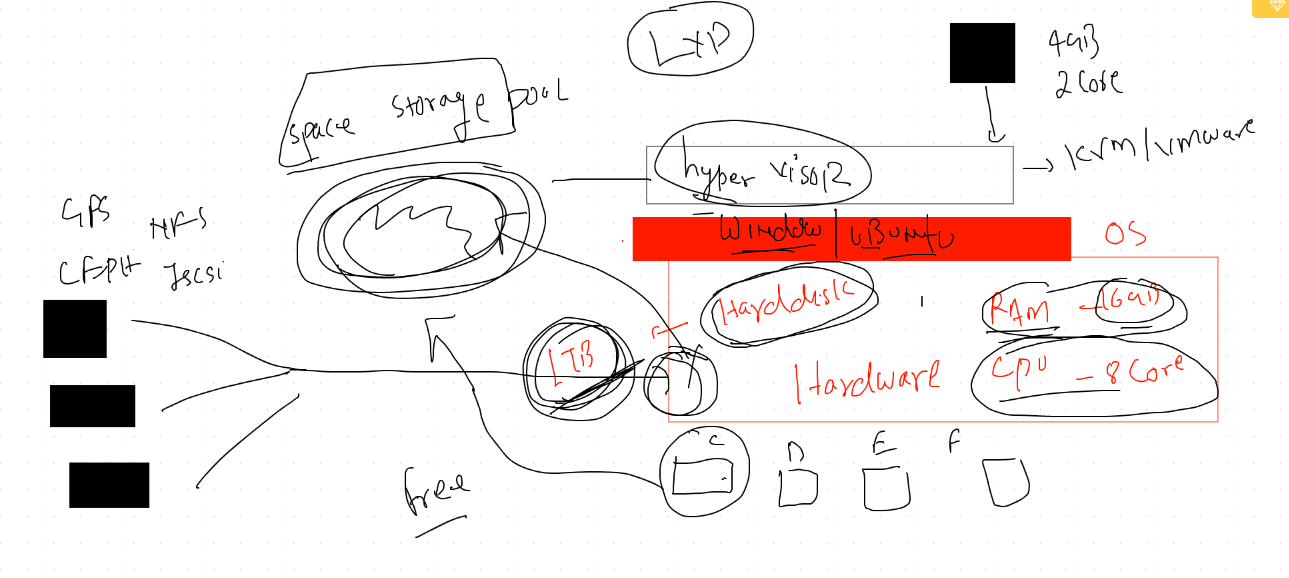 LXP
4GiB
2 Core
space storage pool
hypervisor
→ KVM/vmware
GFS NFS
CEPH Iscsi
Window | UBuntu
OS
Harddisk
RAM - 16GiB
1TB
Hardware
CPU - 8 Core
C D E F
free